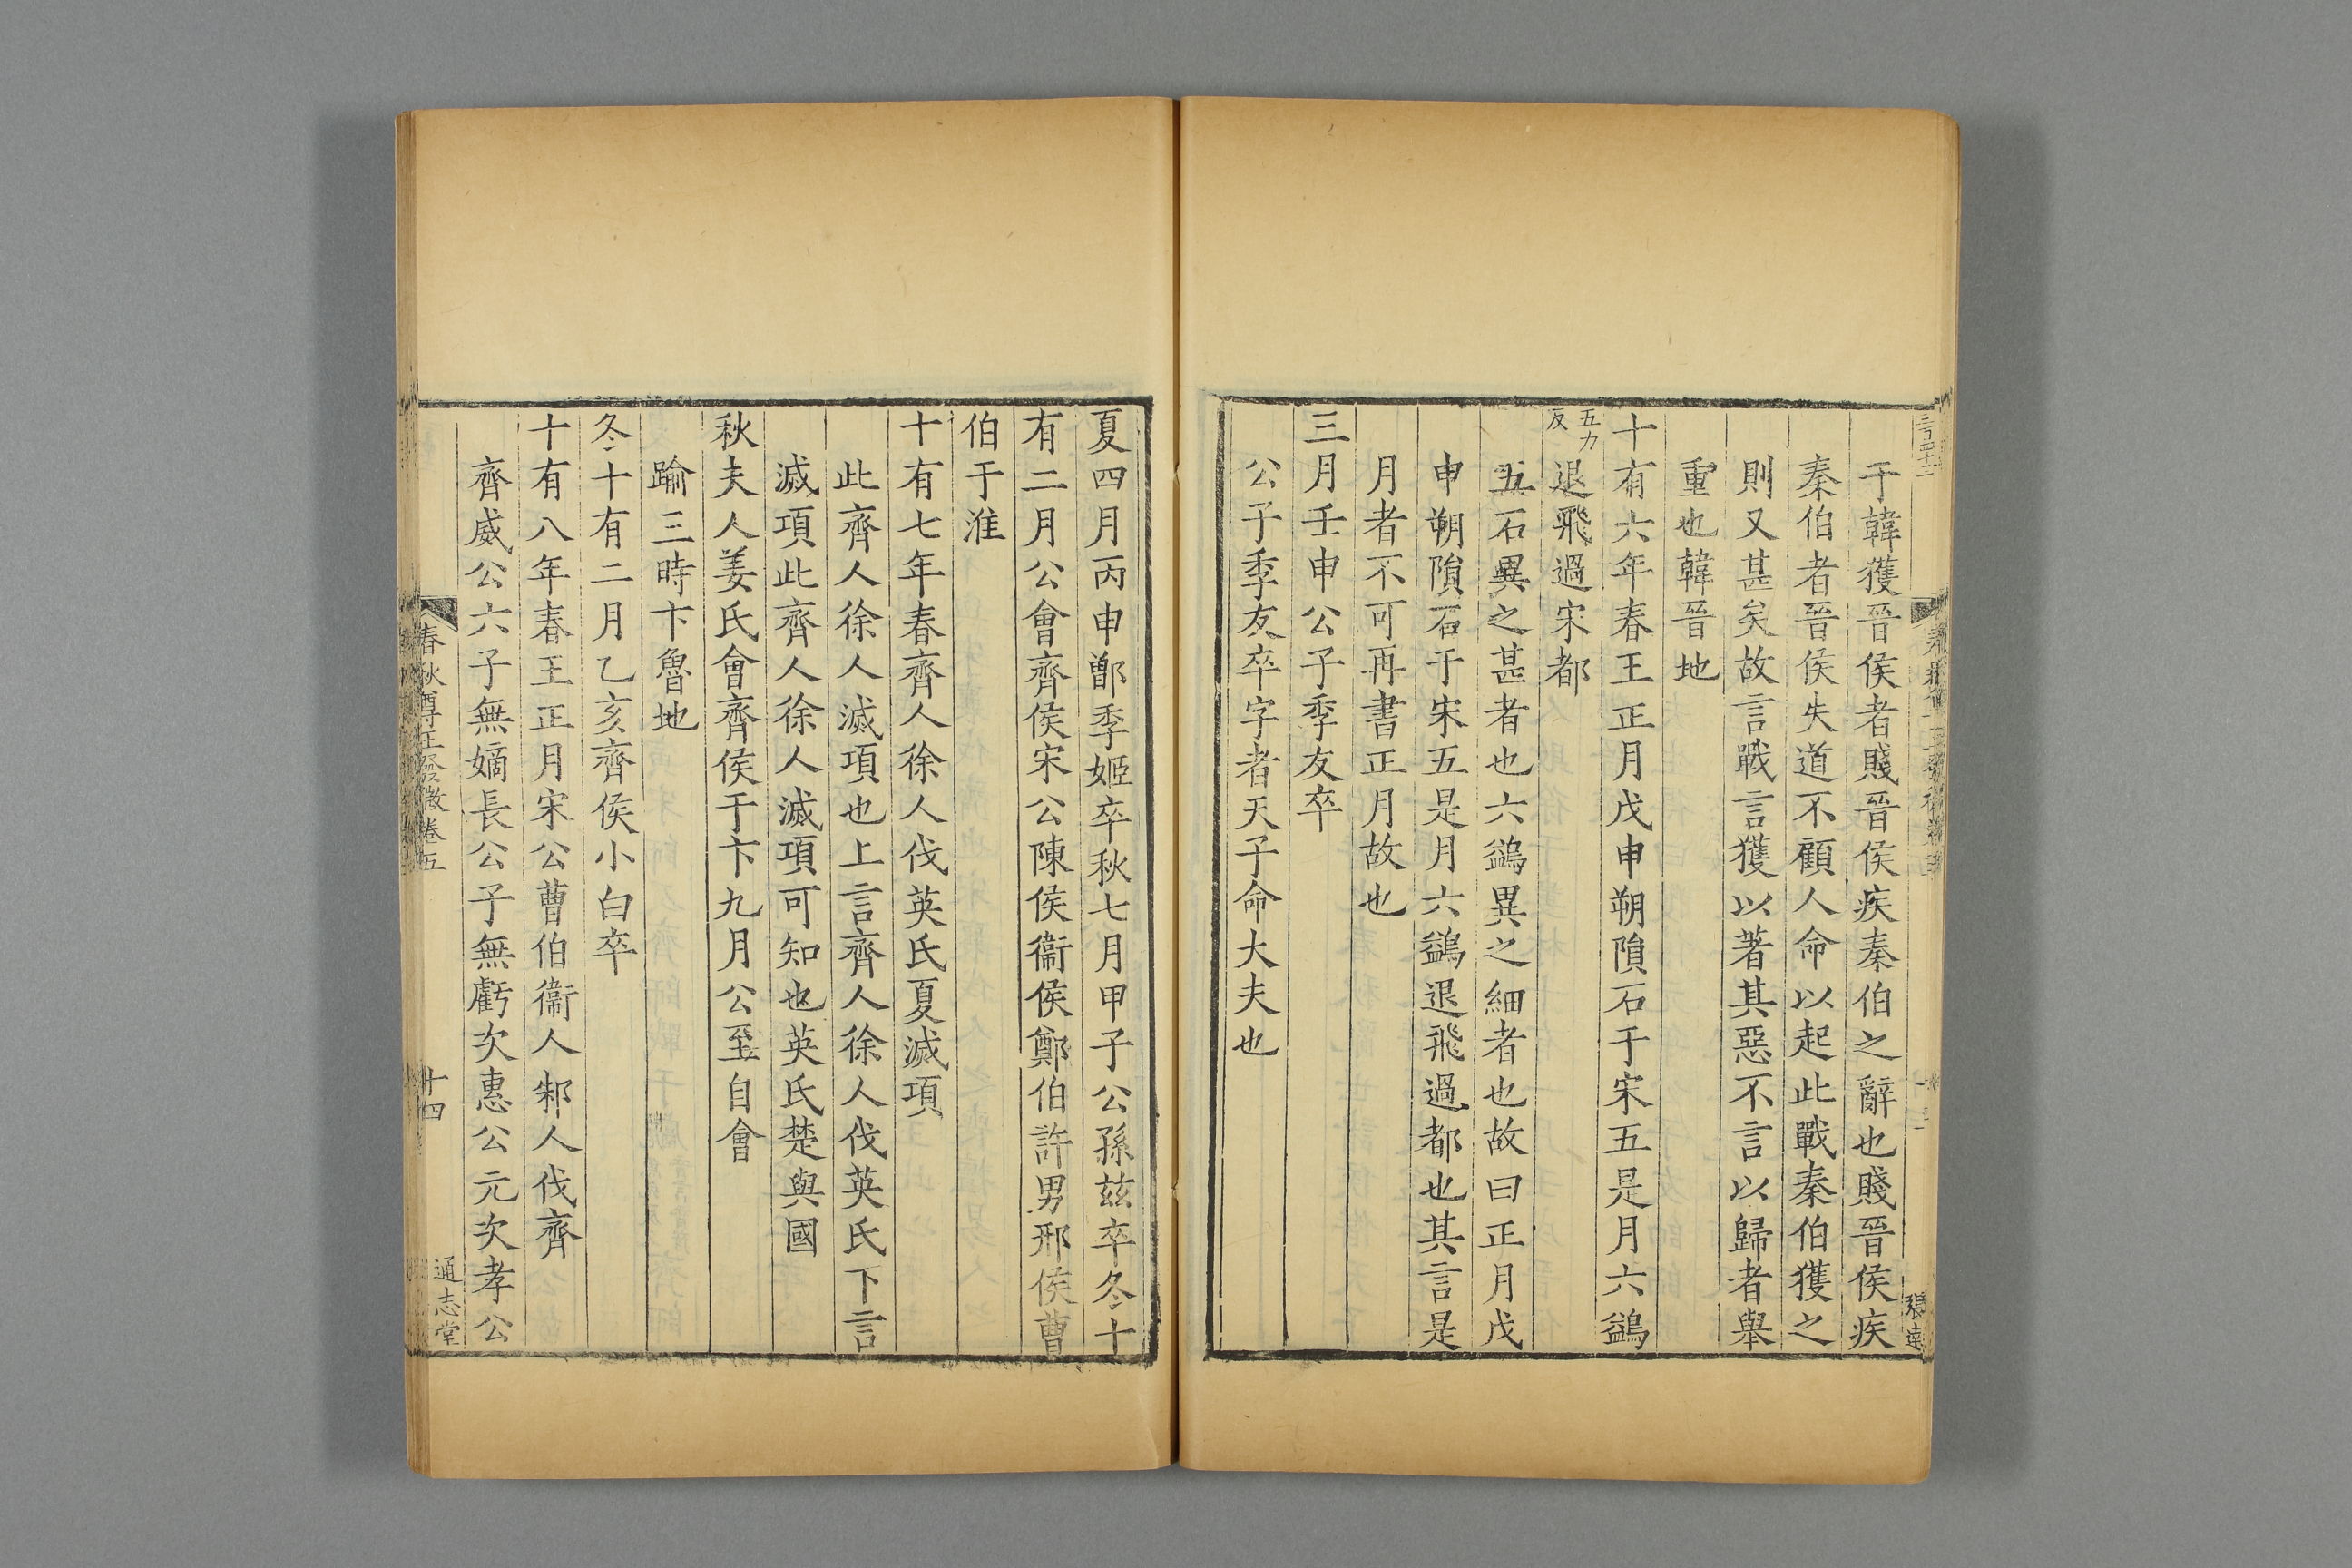 于韓獲晉侯者賤晉侯疾秦伯之辭也賤晉侯疾
秦伯者晉侯失道不顧人命以起此戰秦伯獲之
則又甚矣故言戰言獲以著其惡不言以歸者舉
重也韓晉地
十有六年春王正月戊申朔隕石于宋五是月六鷁
五力反
退飛過宋都
五石異之甚者也六鷁異之細者也故曰正月戊
申朔隕石于宋五是月六鷁退飛過都也其言是
月者不可再書正月故也
三月壬申公子季友卒
公子季友卒字者天子命大夫也
夏四月丙申鄫季姬卒秋七月甲子公孫茲卒冬十
有二月公會齊侯宋公陳侯衞侯鄭伯許男邢侯曹
伯于淮
十有七年春齊人徐人伐英氏夏滅項
此齊人徐人滅項也上言齊人徐人伐英氏下言
滅項此齊人徐人滅項可知也英氏楚與國
秋夫人姜氏會齊侯于卞九月公至自會
踰三時卞魯地
冬十有二月乙亥齊侯小白卒
十有八年春王正月宋公曹伯衞人邾人伐齊
齊威公六子無嫡長公子無虧次惠公元次孝公
春秋尊王發微卷五
十四
通志堂